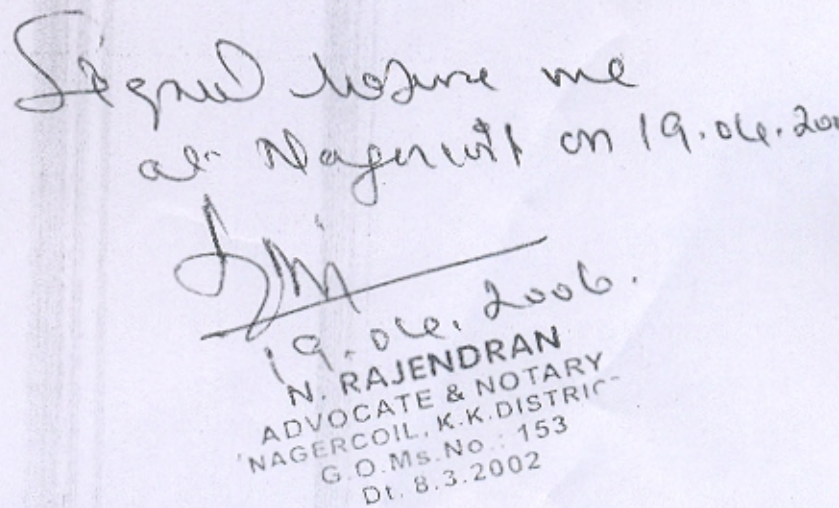 Signed before me
at Nagercoil on 19.04.200
19.04.2006.
N. RAJENDRAN
ADVOCATE & NOTARY
NAGERCOIL, K.K.DISTRIC
G.O.Ms.No.: 153
Dt. 8.3.2002